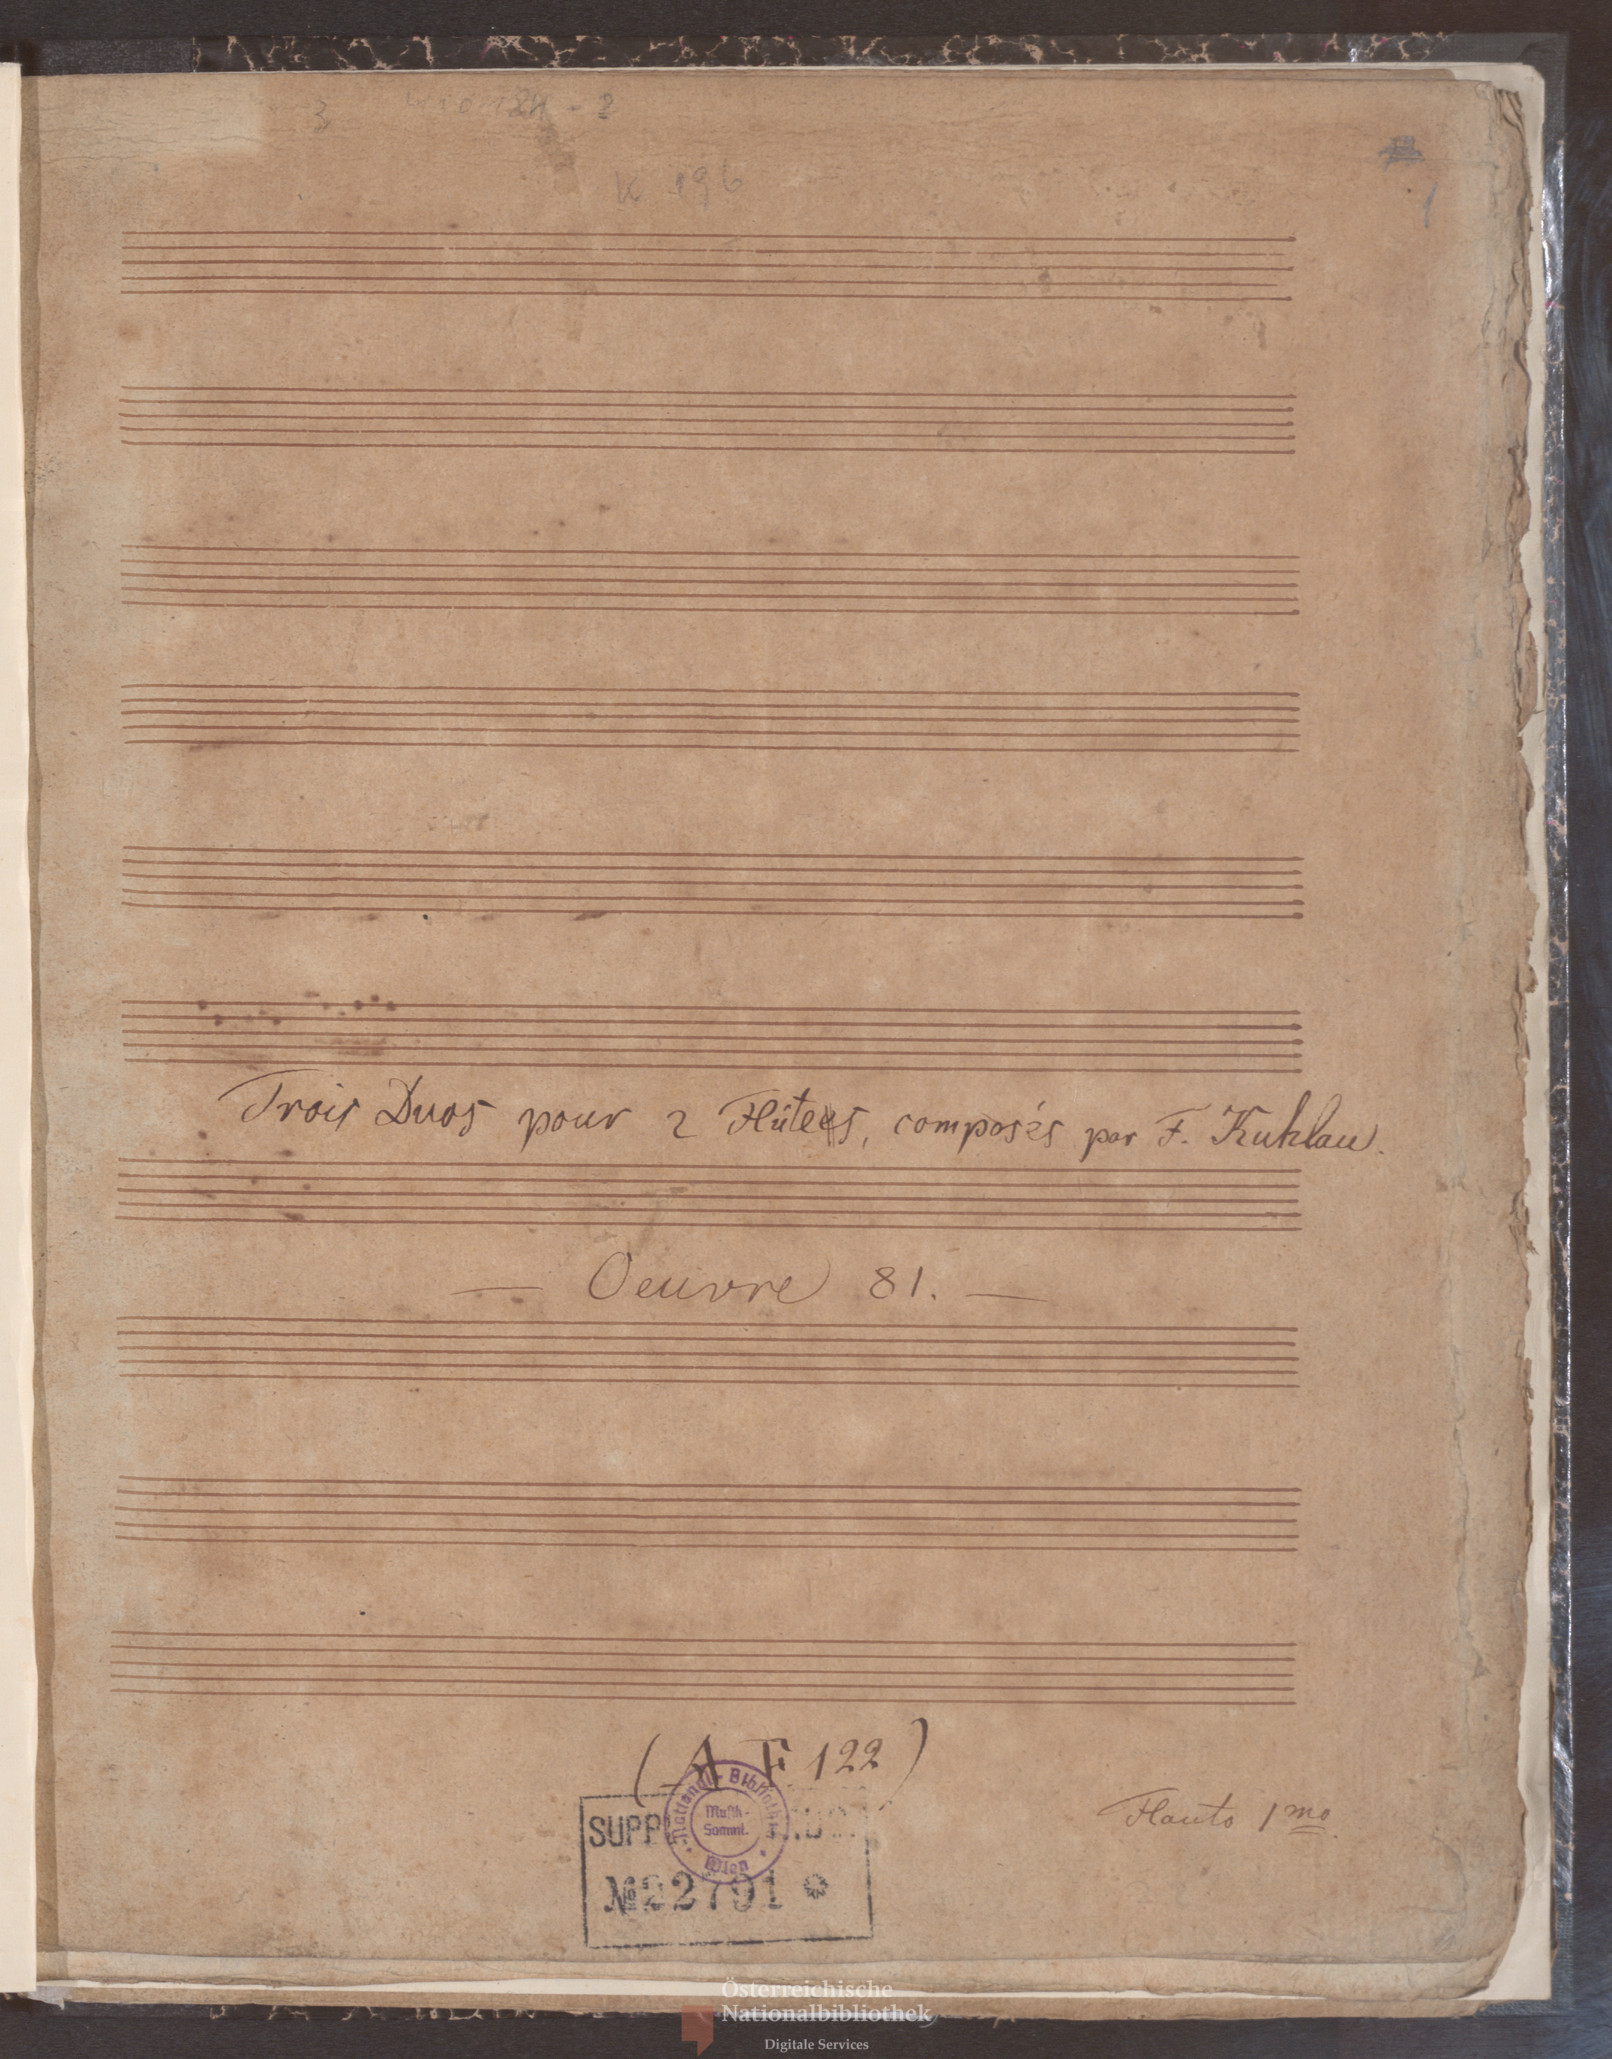 3
K 196
1
Trois Duos pour 2 Flûtes, composés par F. Kuhlau.
— Oeuvre 81. —
(A F 122)
National-Bibliothek
Musik-
Samml.
Wien
SUPPL
№22791 *
Flauto 1mo.
Österreichische
Nationalbibliothek
Digitale Services